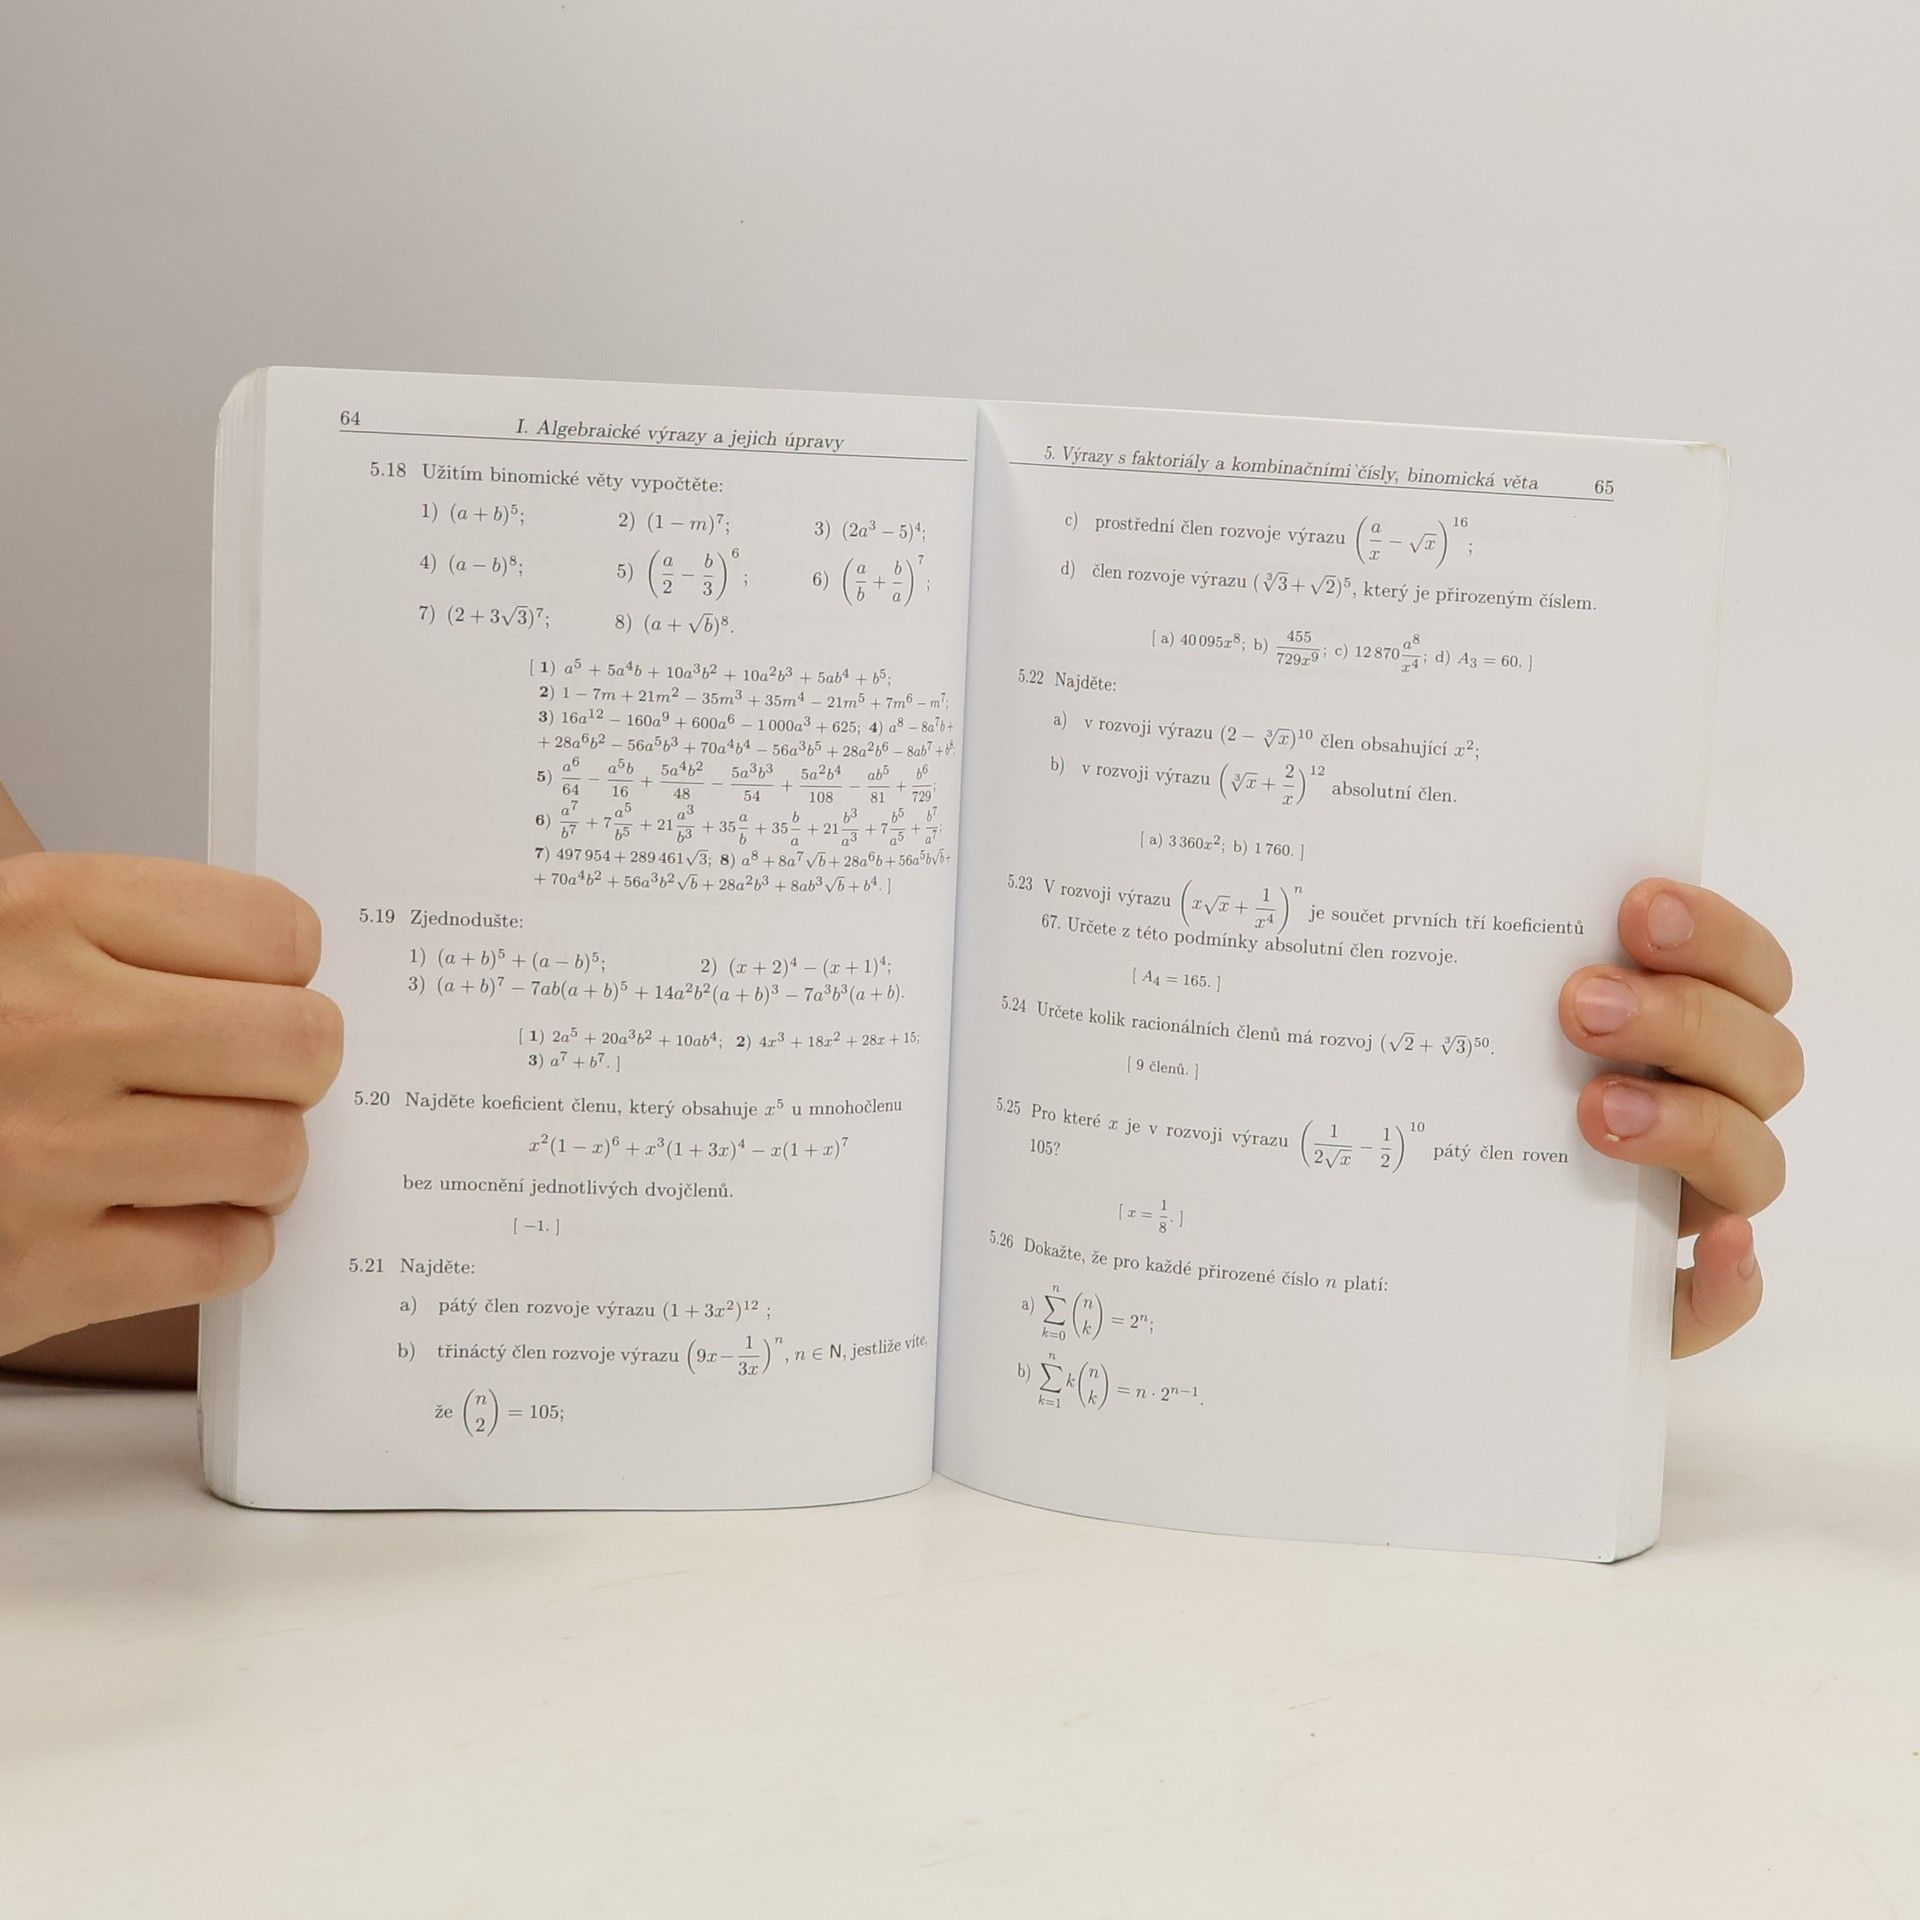 64 I. Algebraické výrazy a jejich úpravy
5.18 Užitím binomické věty vypočtěte:
1) (a + b)⁵; 2) (1 − m)⁷; 3) (2a³ − 5)⁴;
4) (a − b)⁸; 5) (a/2 − b/3)⁶; 6) (a/b + b/a)⁷;
7) (2 + 3√3)⁷; 8) (a + √b)⁸.
[ 1) a⁵ + 5a⁴b + 10a³b² + 10a²b³ + 5ab⁴ + b⁵;
2) 1 − 7m + 21m² − 35m³ + 35m⁴ − 21m⁵ + 7m⁶ − m⁷;
3) 16a¹² − 160a⁹ + 600a⁶ − 1 000a³ + 625; 4) a⁸ − 8a⁷b +
+ 28a⁶b² − 56a⁵b³ + 70a⁴b⁴ − 56a³b⁵ + 28a²b⁶ − 8ab⁷ + b⁸;
5) a⁶/64 − a⁵b/16 + 5a⁴b²/48 − 5a³b³/54 + 5a²b⁴/108 − ab⁵/81 + b⁶/729;
6) a⁷/b⁷ + 7a⁵/b⁵ + 21a³/b³ + 35a/b + 35b/a + 21b³/a³ + 7b⁵/a⁵ + b⁷/a⁷;
7) 497 954 + 289 461√3; 8) a⁸ + 8a⁷√b + 28a⁶b + 56a⁵b√b +
+ 70a⁴b² + 56a³b²√b + 28a²b³ + 8ab³√b + b⁴. ]
5.19 Zjednodušte:
1) (a + b)⁵ + (a − b)⁵; 2) (x + 2)⁴ − (x + 1)⁴;
3) (a + b)⁷ − 7ab(a + b)⁵ + 14a²b²(a + b)³ − 7a³b³(a + b).
[ 1) 2a⁵ + 20a³b² + 10ab⁴; 2) 4x³ + 18x² + 28x + 15;
3) a⁷ + b⁷. ]
5.20 Najděte koeficient členu, který obsahuje x⁵ u mnohočlenu
x²(1 − x)⁶ + x³(1 + 3x)⁴ − x(1 + x)⁷
bez umocnění jednotlivých dvojčlenů.
[ −1. ]
5.21 Najděte:
a) pátý člen rozvoje výrazu (1 + 3x²)¹² ;
b) třináctý člen rozvoje výrazu (9x − 1/(3x))ⁿ, n ∈ N, jestliže víte,
že (n 2) = 105;
5. Výrazy s faktoriály a kombinačními čísly, binomická věta 65
c) prostřední člen rozvoje výrazu (a/x − √x)¹⁶;
d) člen rozvoje výrazu (∛3 + √2)⁵, který je přirozeným číslem.
[ a) 40 095x⁸; b) 455/(729x⁹); c) 12 870 a⁸/x⁴; d) A₃ = 60. ]
5.22 Najděte:
a) v rozvoji výrazu (2 − ∛x)¹⁰ člen obsahující x²;
b) v rozvoji výrazu (∛x + 2/x)¹² absolutní člen.
[ a) 3 360x²; b) 1 760. ]
5.23 V rozvoji výrazu (x√x + 1/x⁴)ⁿ je součet prvních tří koeficientů
67. Určete z této podmínky absolutní člen rozvoje.
[ A₄ = 165. ]
5.24 Určete kolik racionálních členů má rozvoj (√2 + ∛3)⁵⁰.
[ 9 členů. ]
5.25 Pro které x je v rozvoji výrazu (1/(2√x) − 1/2)¹⁰ pátý člen roven
105?
[ x = 1/8. ]
5.26 Dokažte, že pro každé přirozené číslo n platí:
a) ∑ₖ₌₀ⁿ (n k) = 2ⁿ;
b) ∑ₖ₌₁ⁿ k(n k) = n · 2ⁿ⁻¹.